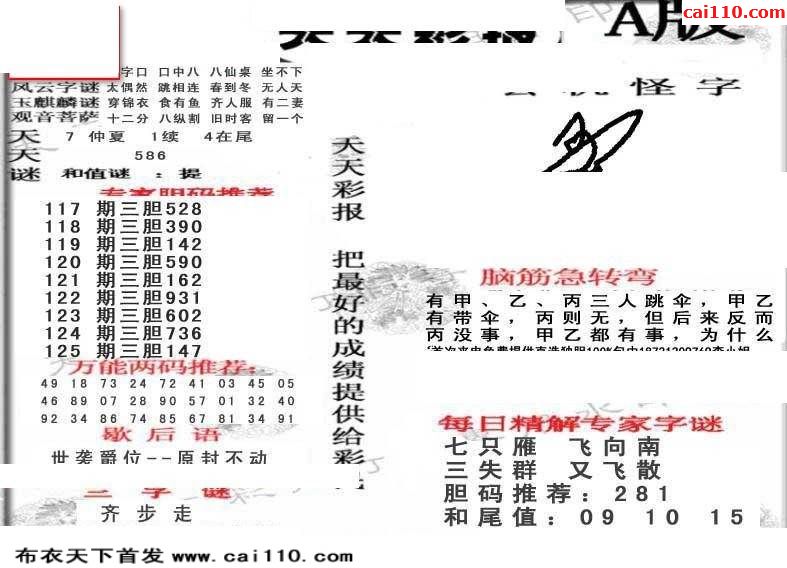 cai110.com
A版
天天彩报
怪字
字口 口中八 八仙桌 坐不下
风云字谜 太偶然 跳相连 春到冬 无人天
玉麒麟谜 穿锦衣 食有鱼 齐人服 有二妻
观音菩萨 十二分 八纵割 旧时客 留一个
天 7 仲夏 1续 4在尾
天 586
谜 和值谜 : 提
专家胆码推荐
117 期三胆528
118 期三胆390
119 期三胆142
120 期三胆590
121 期三胆162
122 期三胆931
123 期三胆602
124 期三胆736
125 期三胆147
万能两码推荐:
49 18 73 24 72 41 03 45 05
46 89 07 28 90 57 01 32 40
92 34 86 74 85 67 81 34 91
歇后语
世袭爵位--原封不动
三字谜
齐步走
天天彩报 把最好的成绩提供给彩
脑筋急转弯
有甲、乙、丙三人跳伞，甲乙
有带伞，丙则无，但后来反而
丙没事，甲乙都有事，为什么
每日精解专家字谜
七只雁 飞向南
三失群 又飞散
胆码推荐: 281
和尾值: 09 10 15
布衣天下首发 www.cai110.com